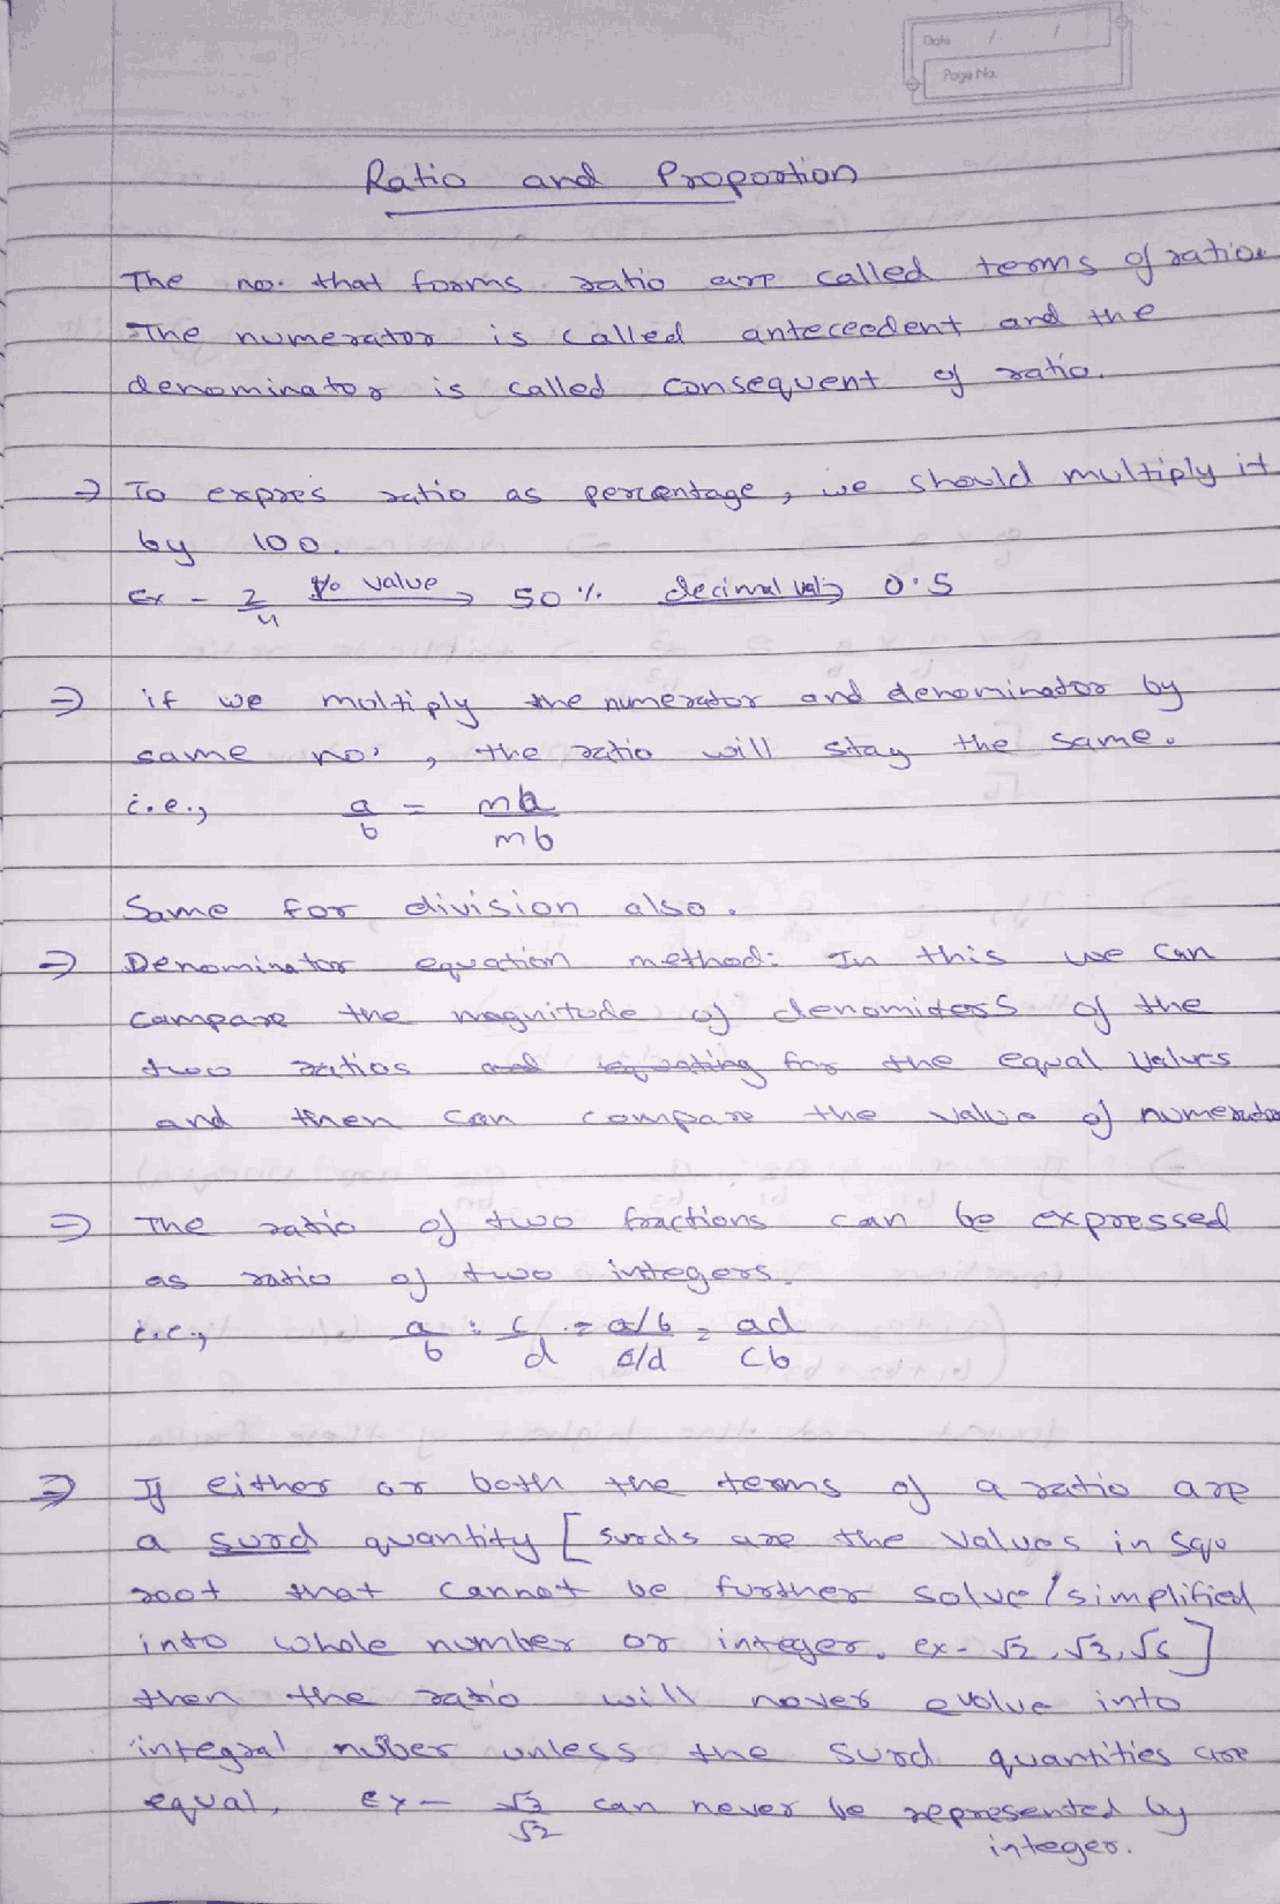 Date / /
Page No.
Ratio and Proportion
The no. that forms ratio are called terms of ratio
The numerator is called anteceedent and the
denominator is called consequent of ratio.
⇒ To expres ratio as percentage, we should multiply it
by 100.
Ex - 2/4 % value → 50 % decimal val → 0.5
⇒ if we multiply the numerator and denominator by
same no., the ratio will stay the same.
i.e., a/b = ma/mb
Same for division also.
⇒ Denominator equation method: In this we can
compare the magnitude of denomitors of the
two ratios and equating for the equal values
and then can compare the value of numerator
⇒ The ratio of two fractions can be expressed
as ratio of two integers.
i.e., a/b : c/d = a/b / c/d = ad/cb
⇒ If either or both the terms of a ratio are
a surd quantity [surds are the values in sqr
root that cannot be further solve/simplified
into whole number or integer. ex- √2, √3, √5]
then the ratio will never evolve into
integral nuber unless the surd quantities are
equal. Ex - √3/√2 can never be represented by
integer.